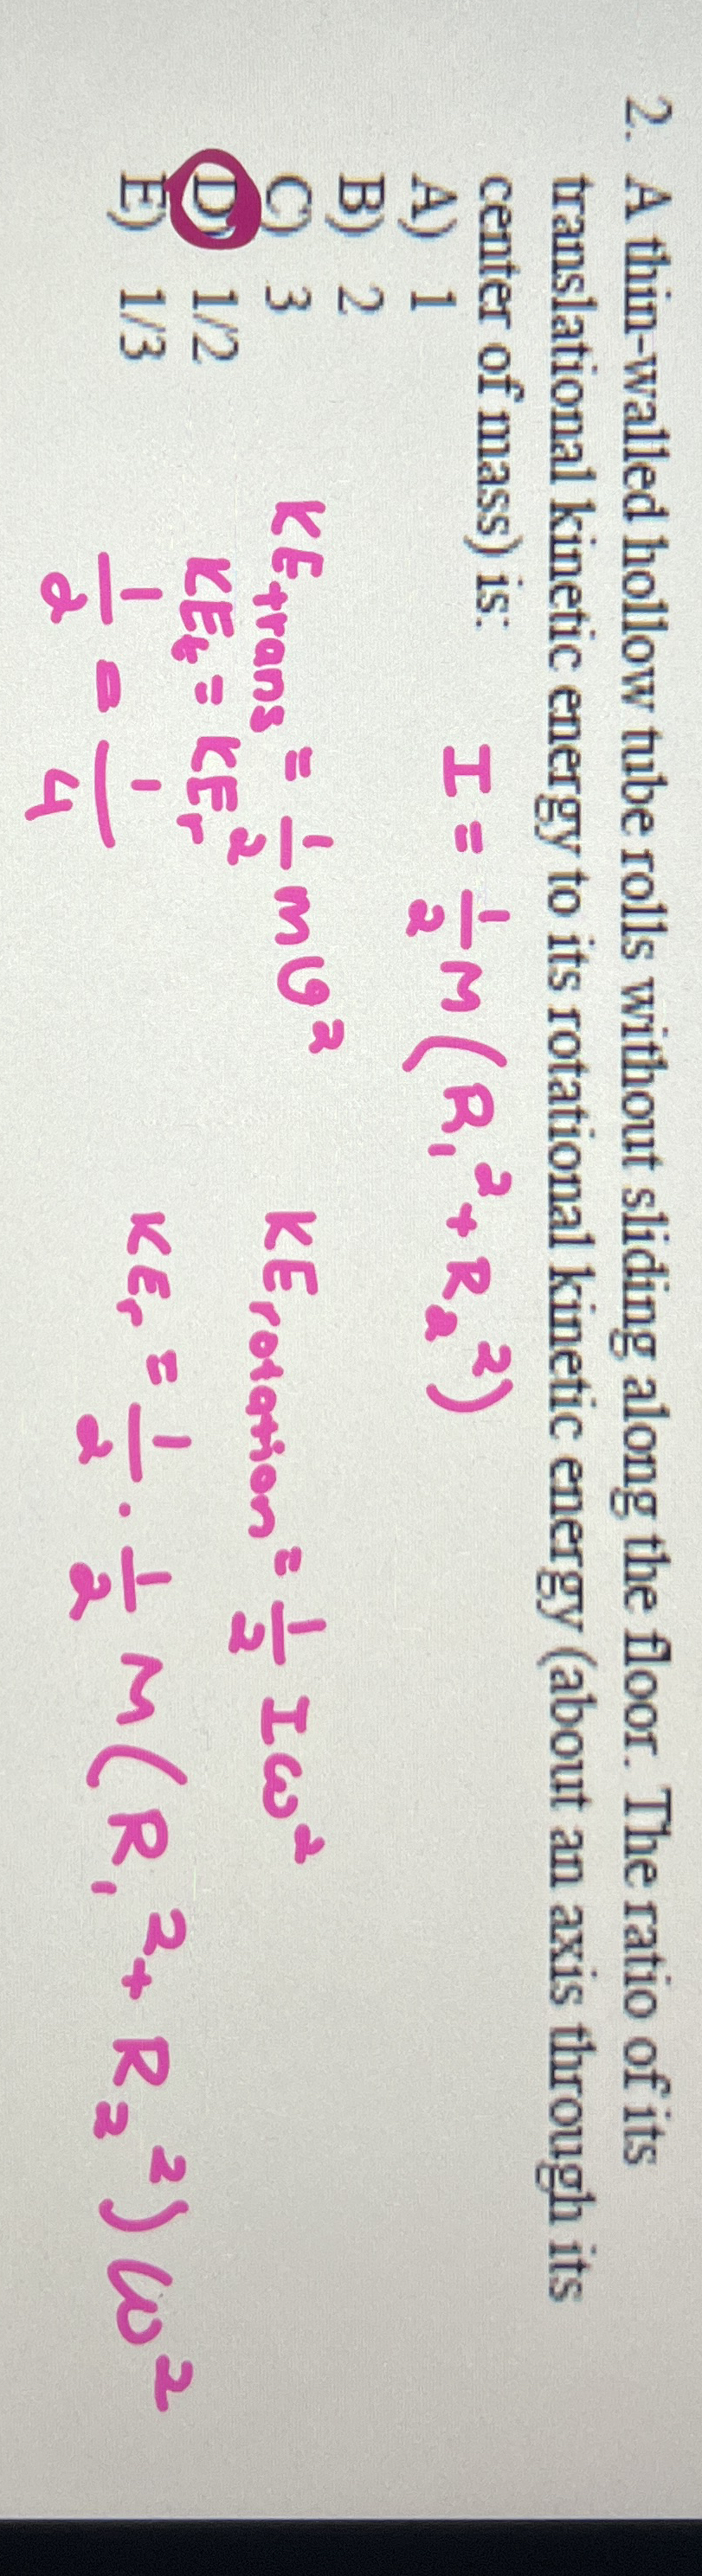 2. A thin-walled hollow tube rolls without sliding along the floor. The ratio of its
translational kinetic energy to its rotational kinetic energy (about an axis through its
center of mass) is:
A) 1
B) 2
C) 3
D) 1/2
E) 1/3
I = 1/2 M (R₁² + R₂²)
KE trans = 1/2 m v²
KE rotation = 1/2 I ω²
KEt = KEr
KEr = 1/2 · 1/2 M (R₁² + R₂²) ω²
1/2 = 1/4